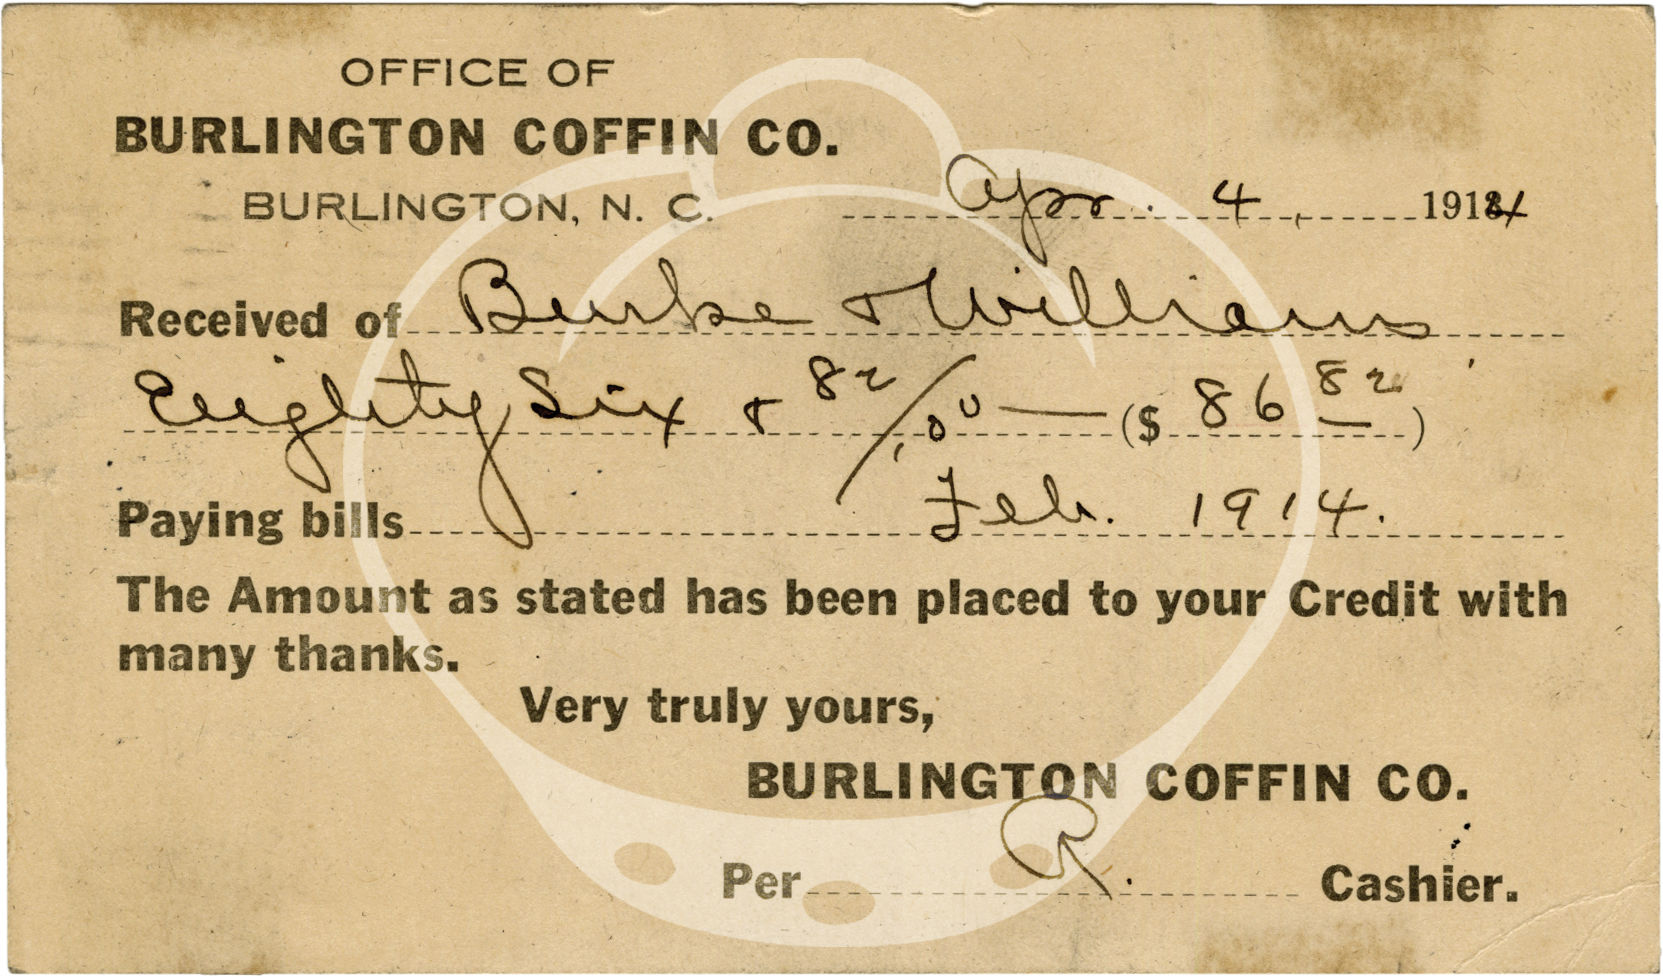 OFFICE OF
BURLINGTON COFFIN CO.
BURLINGTON, N. C. Apr. 4, 1914
Received of Burke & Williams
Eeighty Six & 82/00 — ($ 86 82)
Paying bills Feb. 1914.
The Amount as stated has been placed to your Credit with
many thanks.
Very truly yours,
BURLINGTON COFFIN CO.
Per R. Cashier.